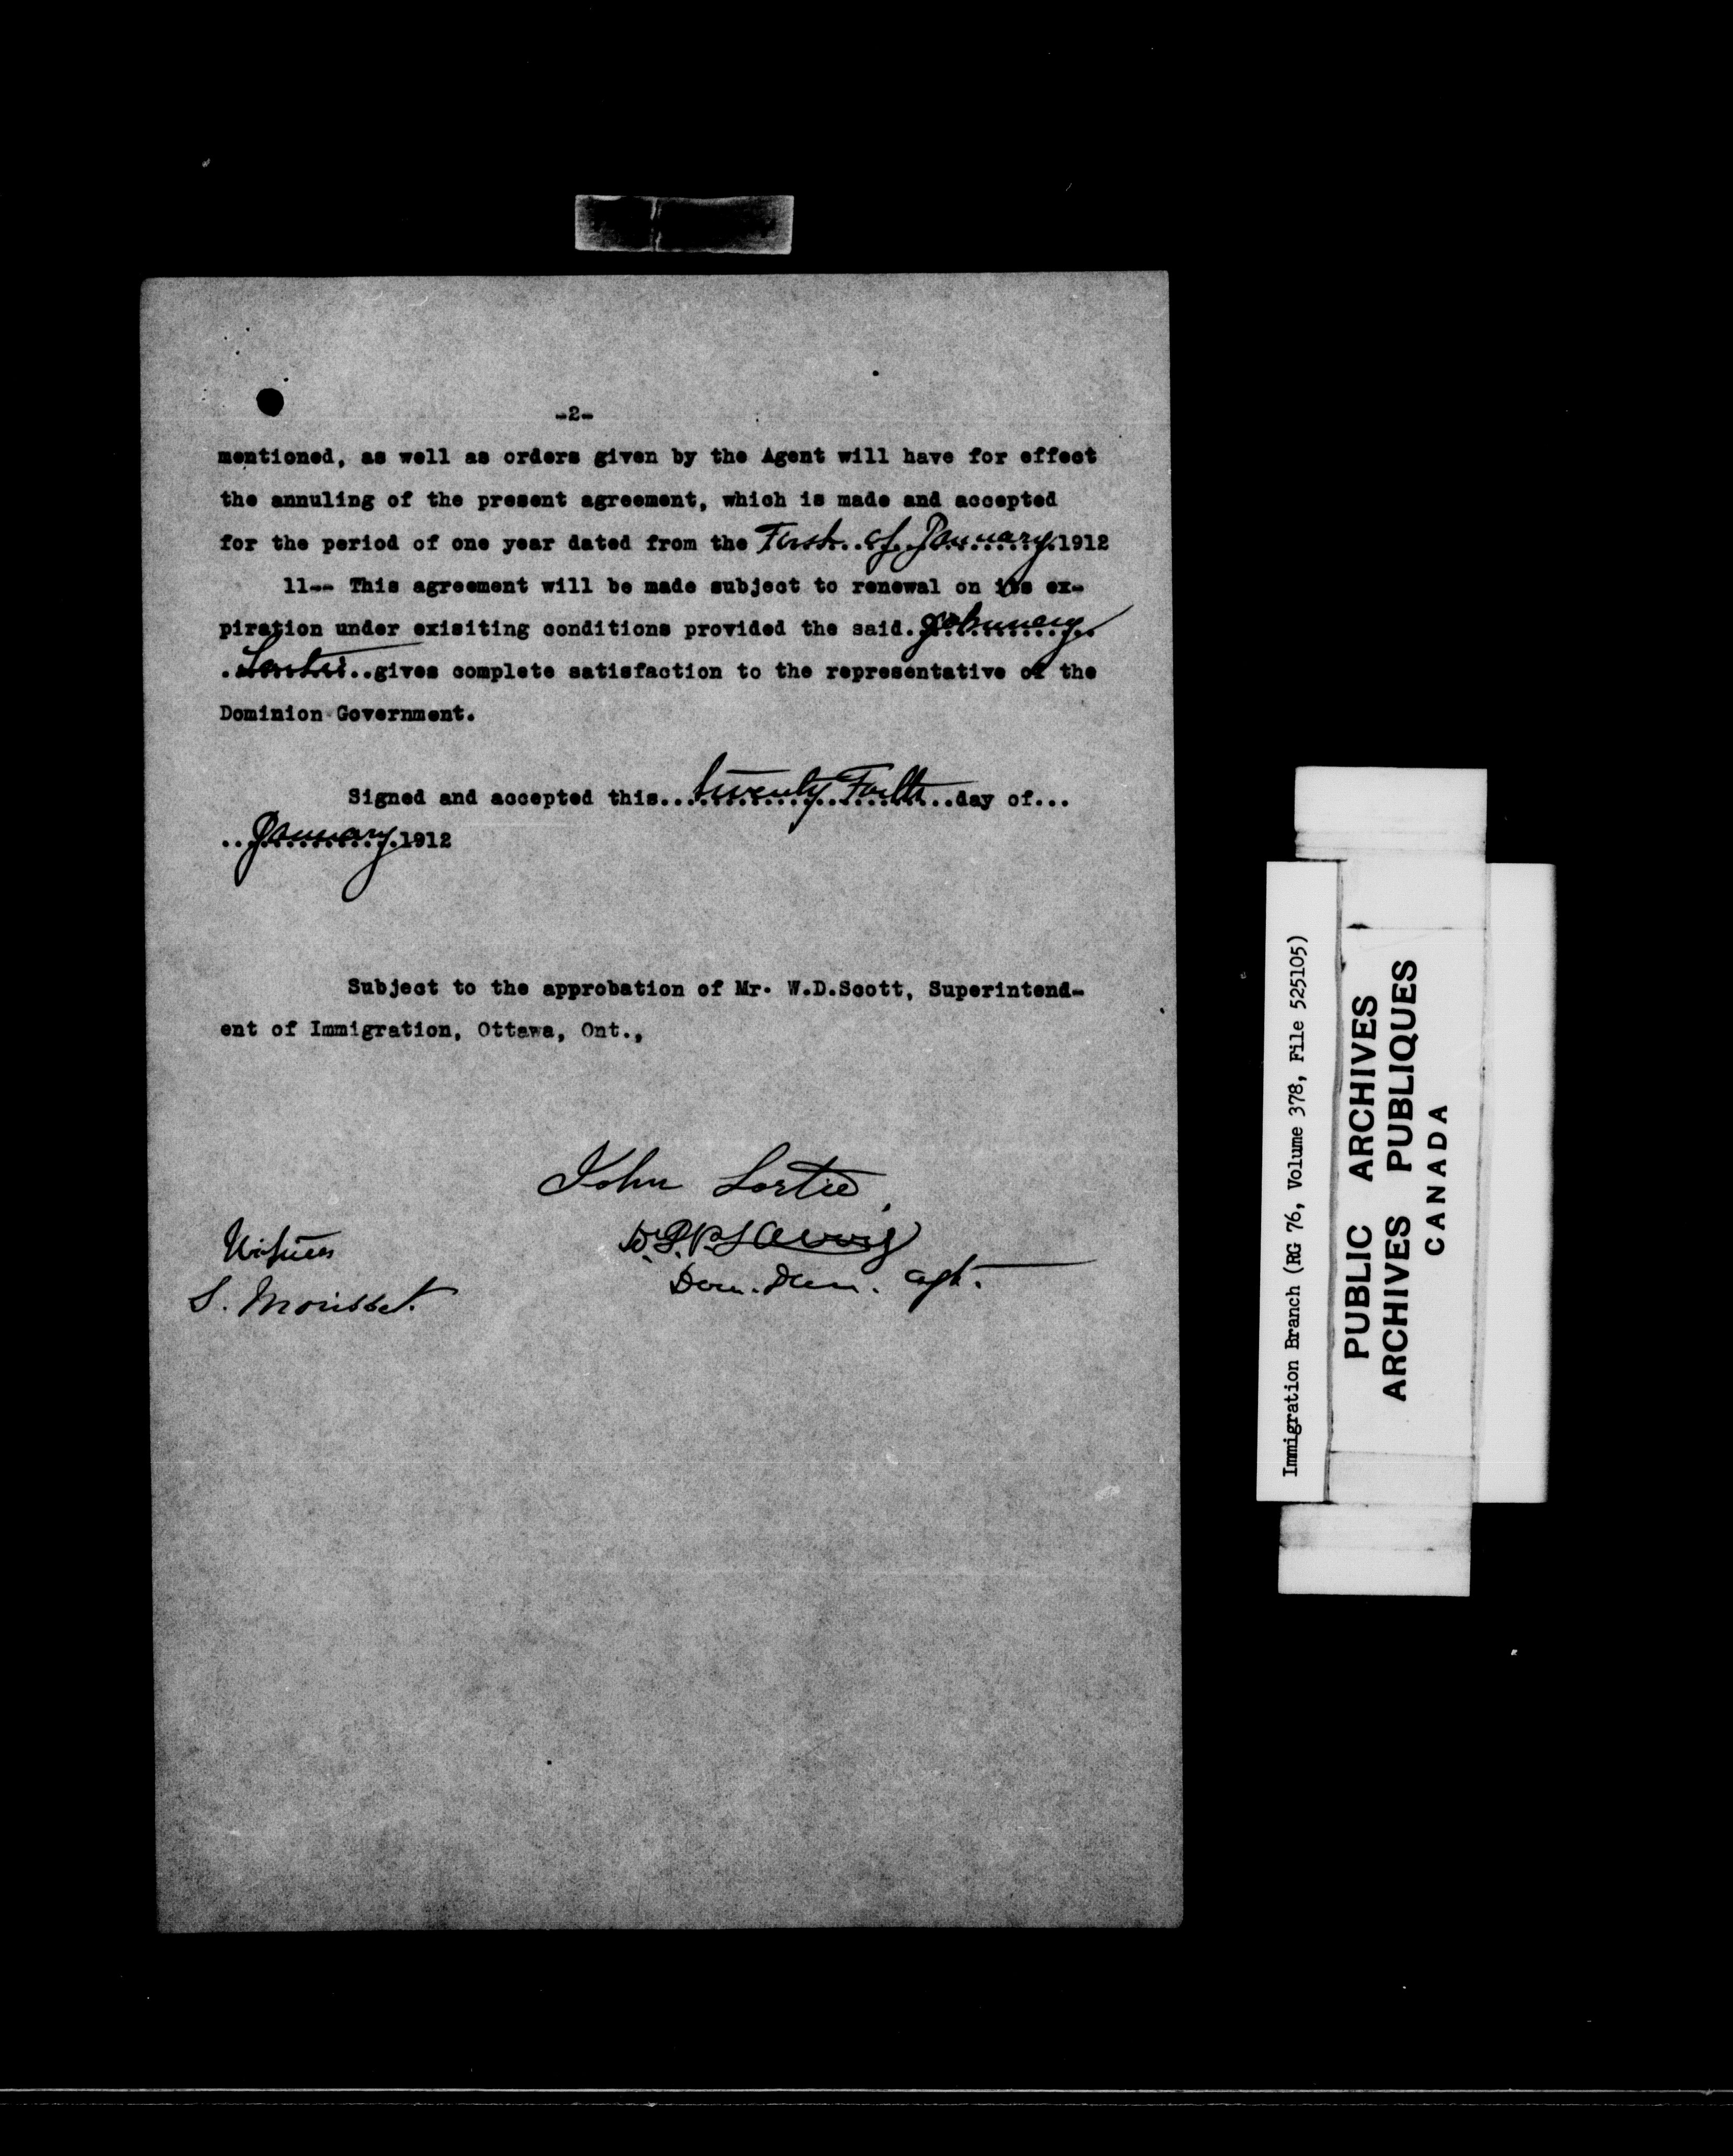 -2-
mentioned, as well as orders given by the Agent will have for effect
the annuling of the present agreement, which is made and accepted
for the period of one year dated from the First of January 1912
11-- This agreement will be made subject to renewal on its ex-
piration under exisiting conditions provided the said. Johnney
Lortie..gives complete satisfaction to the representative of the
Dominion Government.
Signed and accepted this...twenty Forth..day of...
..January.1912
Subject to the approbation of Mr. W.D.Scott, Superintend-
ent of Immigration, Ottawa, Ont.,
John Lortie
Dom. Imm. agt.
Witness
S. Morisset.
Immigration Branch (RG 76, Volume 378, File 525105)
PUBLIC ARCHIVES
ARCHIVES PUBLIQUES
CANADA